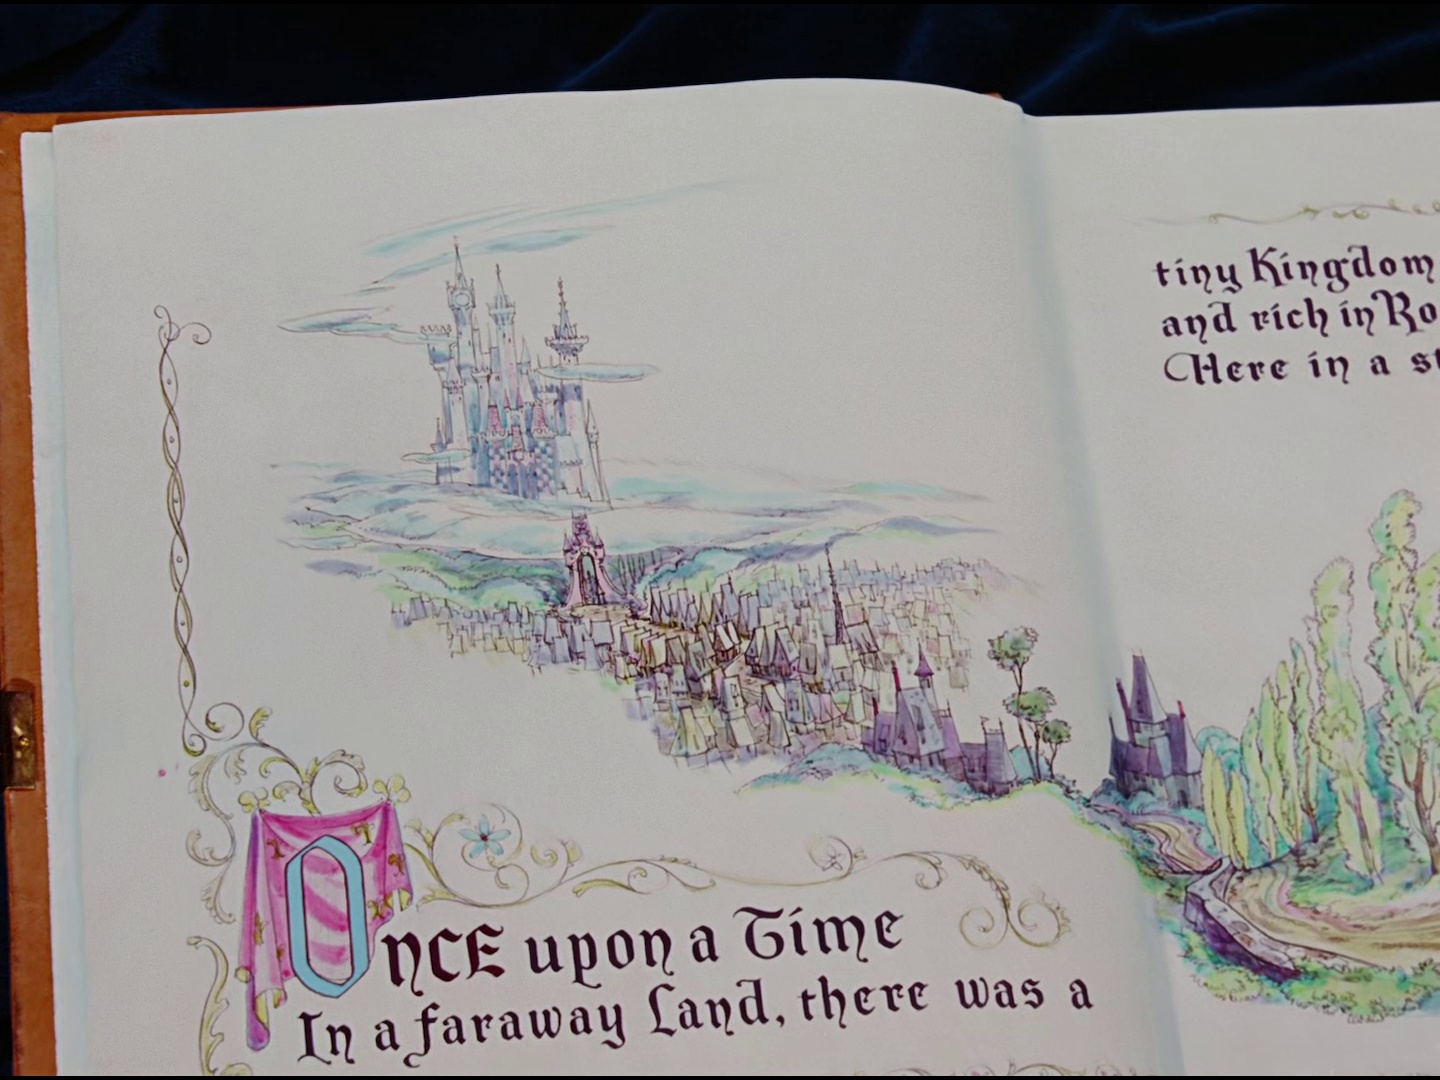 Once upon a Time
In a faraway Land, there was a
tiny Kingdom
and rich in Ro
Here in a st